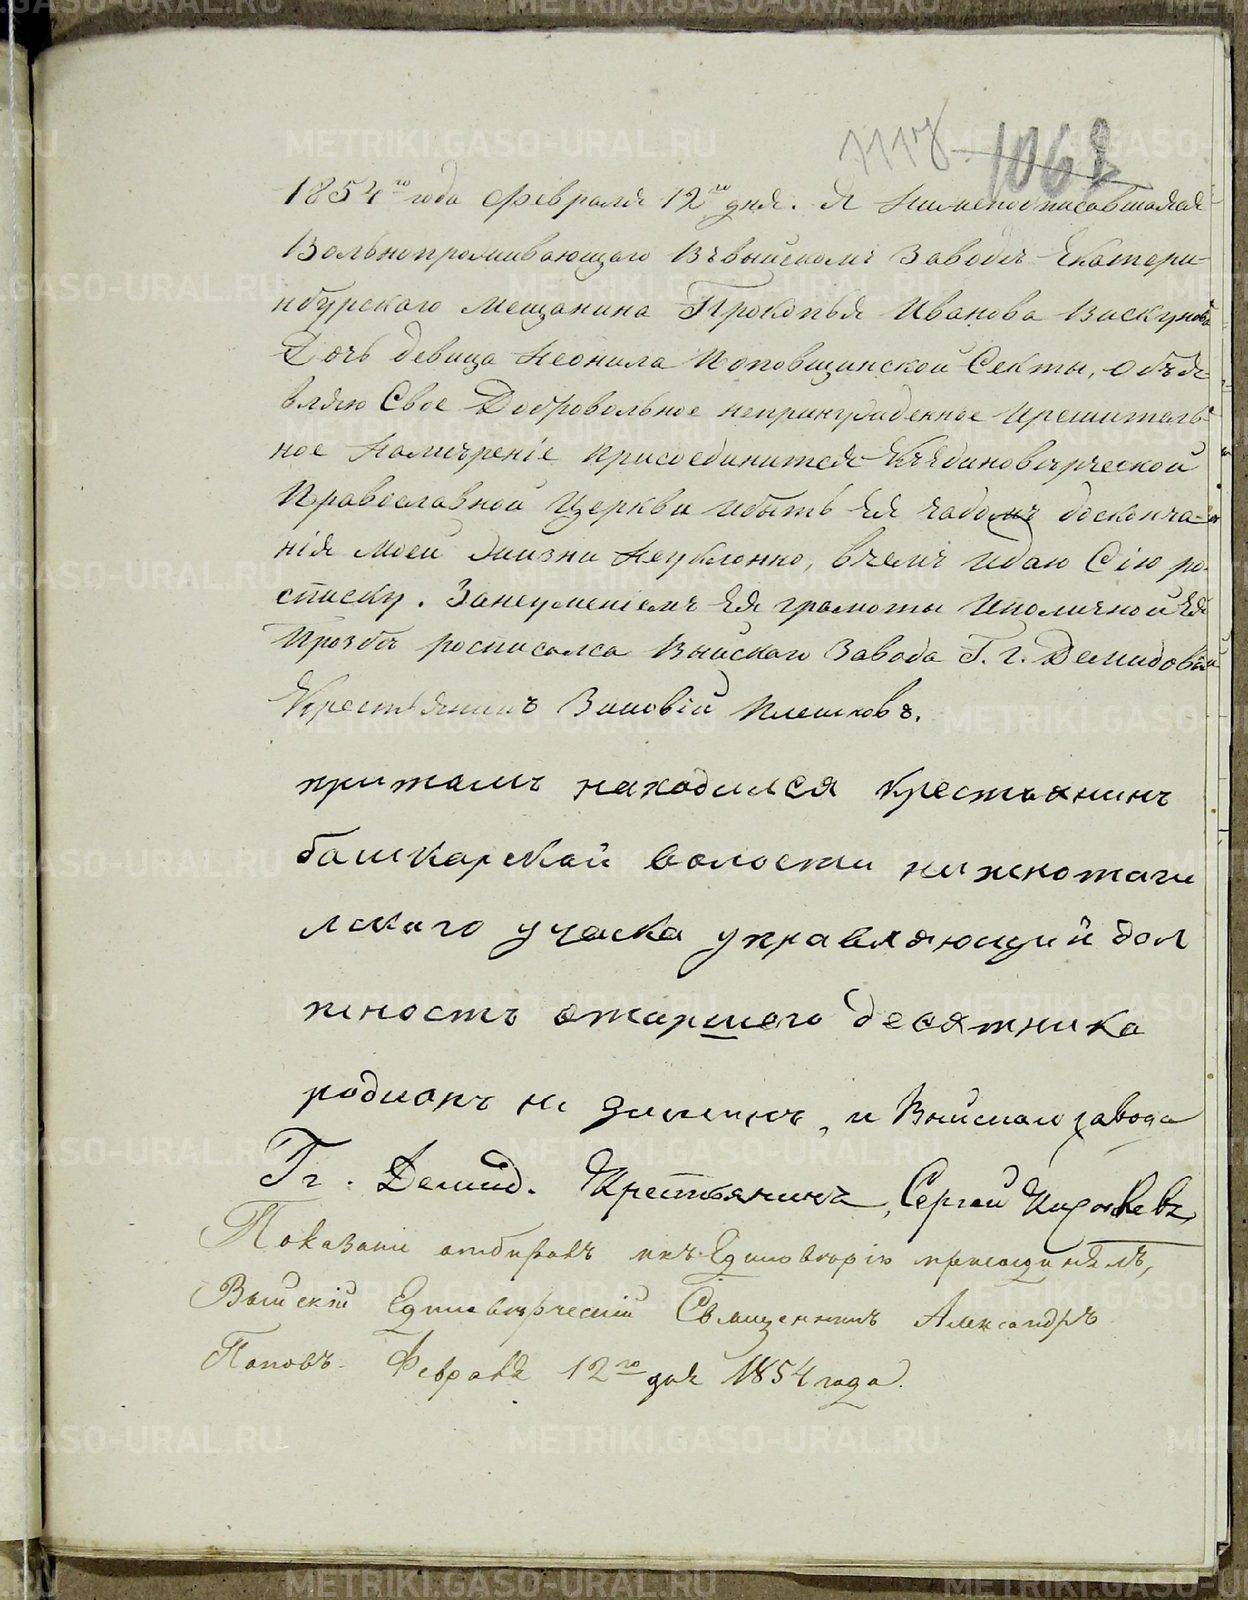 1117 1062
1854го года Февраля 12го дня. Я нижеподписавшаяся
Вольнопроживающаго Ввыйскомъ Заводѣ Екатери-
нбурскаго Мещанина Прокопья Иванова Вискунова
Дочь девица Неонила Поповщинской Секты, объя-
вляю Свое Добровольное непринужденное Ирешитель-
ное Намѣреніе присоединится Къединоверческой
Православной Церкви ибыть Ея чадомъ досконча-
нія моей жизни Неуклонно, вчемъ идаю Сію ро-
списку. Занеуменіемъ Ея грамоты Ипо личной Ея
Прозбѣ росписался Выйскаго Завода Г. г. Демидовыхъ
Крестьянинъ Зиновій Плешковъ.
притомъ находился крестьянинъ
башкарской волости нижнотаги
лскаго учаска управляющий дол
жность старшего десятника
родионъ, и Выйскаго завода
Гг. Демид. Крестьянинъ, Сергей
Показаніе отбиралъ икъ Единоверію присоединялъ,
Выйскій Единоверческій Священникъ Александръ
Поповъ. Февраля 12го дня 1854 года.
METRIKI.GASO-URAL.RU